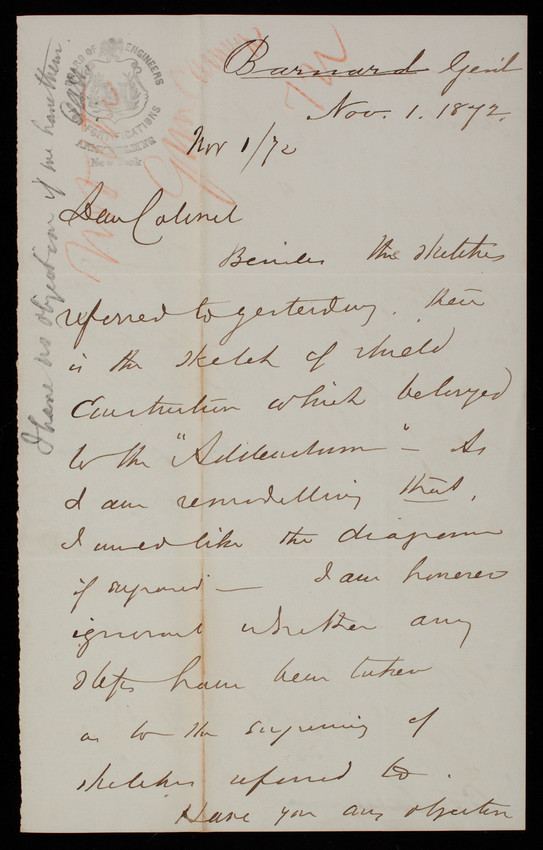 BOARD OF ENGINEERS
FORTIFICATIONS
ARMY BUILDING
New York
Barnard Genl
Nov. 1. 1872.
Nov 1/72
Dear Colonel
Besides the sketches
referred to yesterday, there
is the sketch of shield
Construction which belonged
to the "Addendum" – As
I am remodelling that,
I would like the diagram
if engraved — I am however
ignorant whether any
steps have been taken
as to the engraving of
sketches referred to.
Have you any objection
I have no objection if we have them.